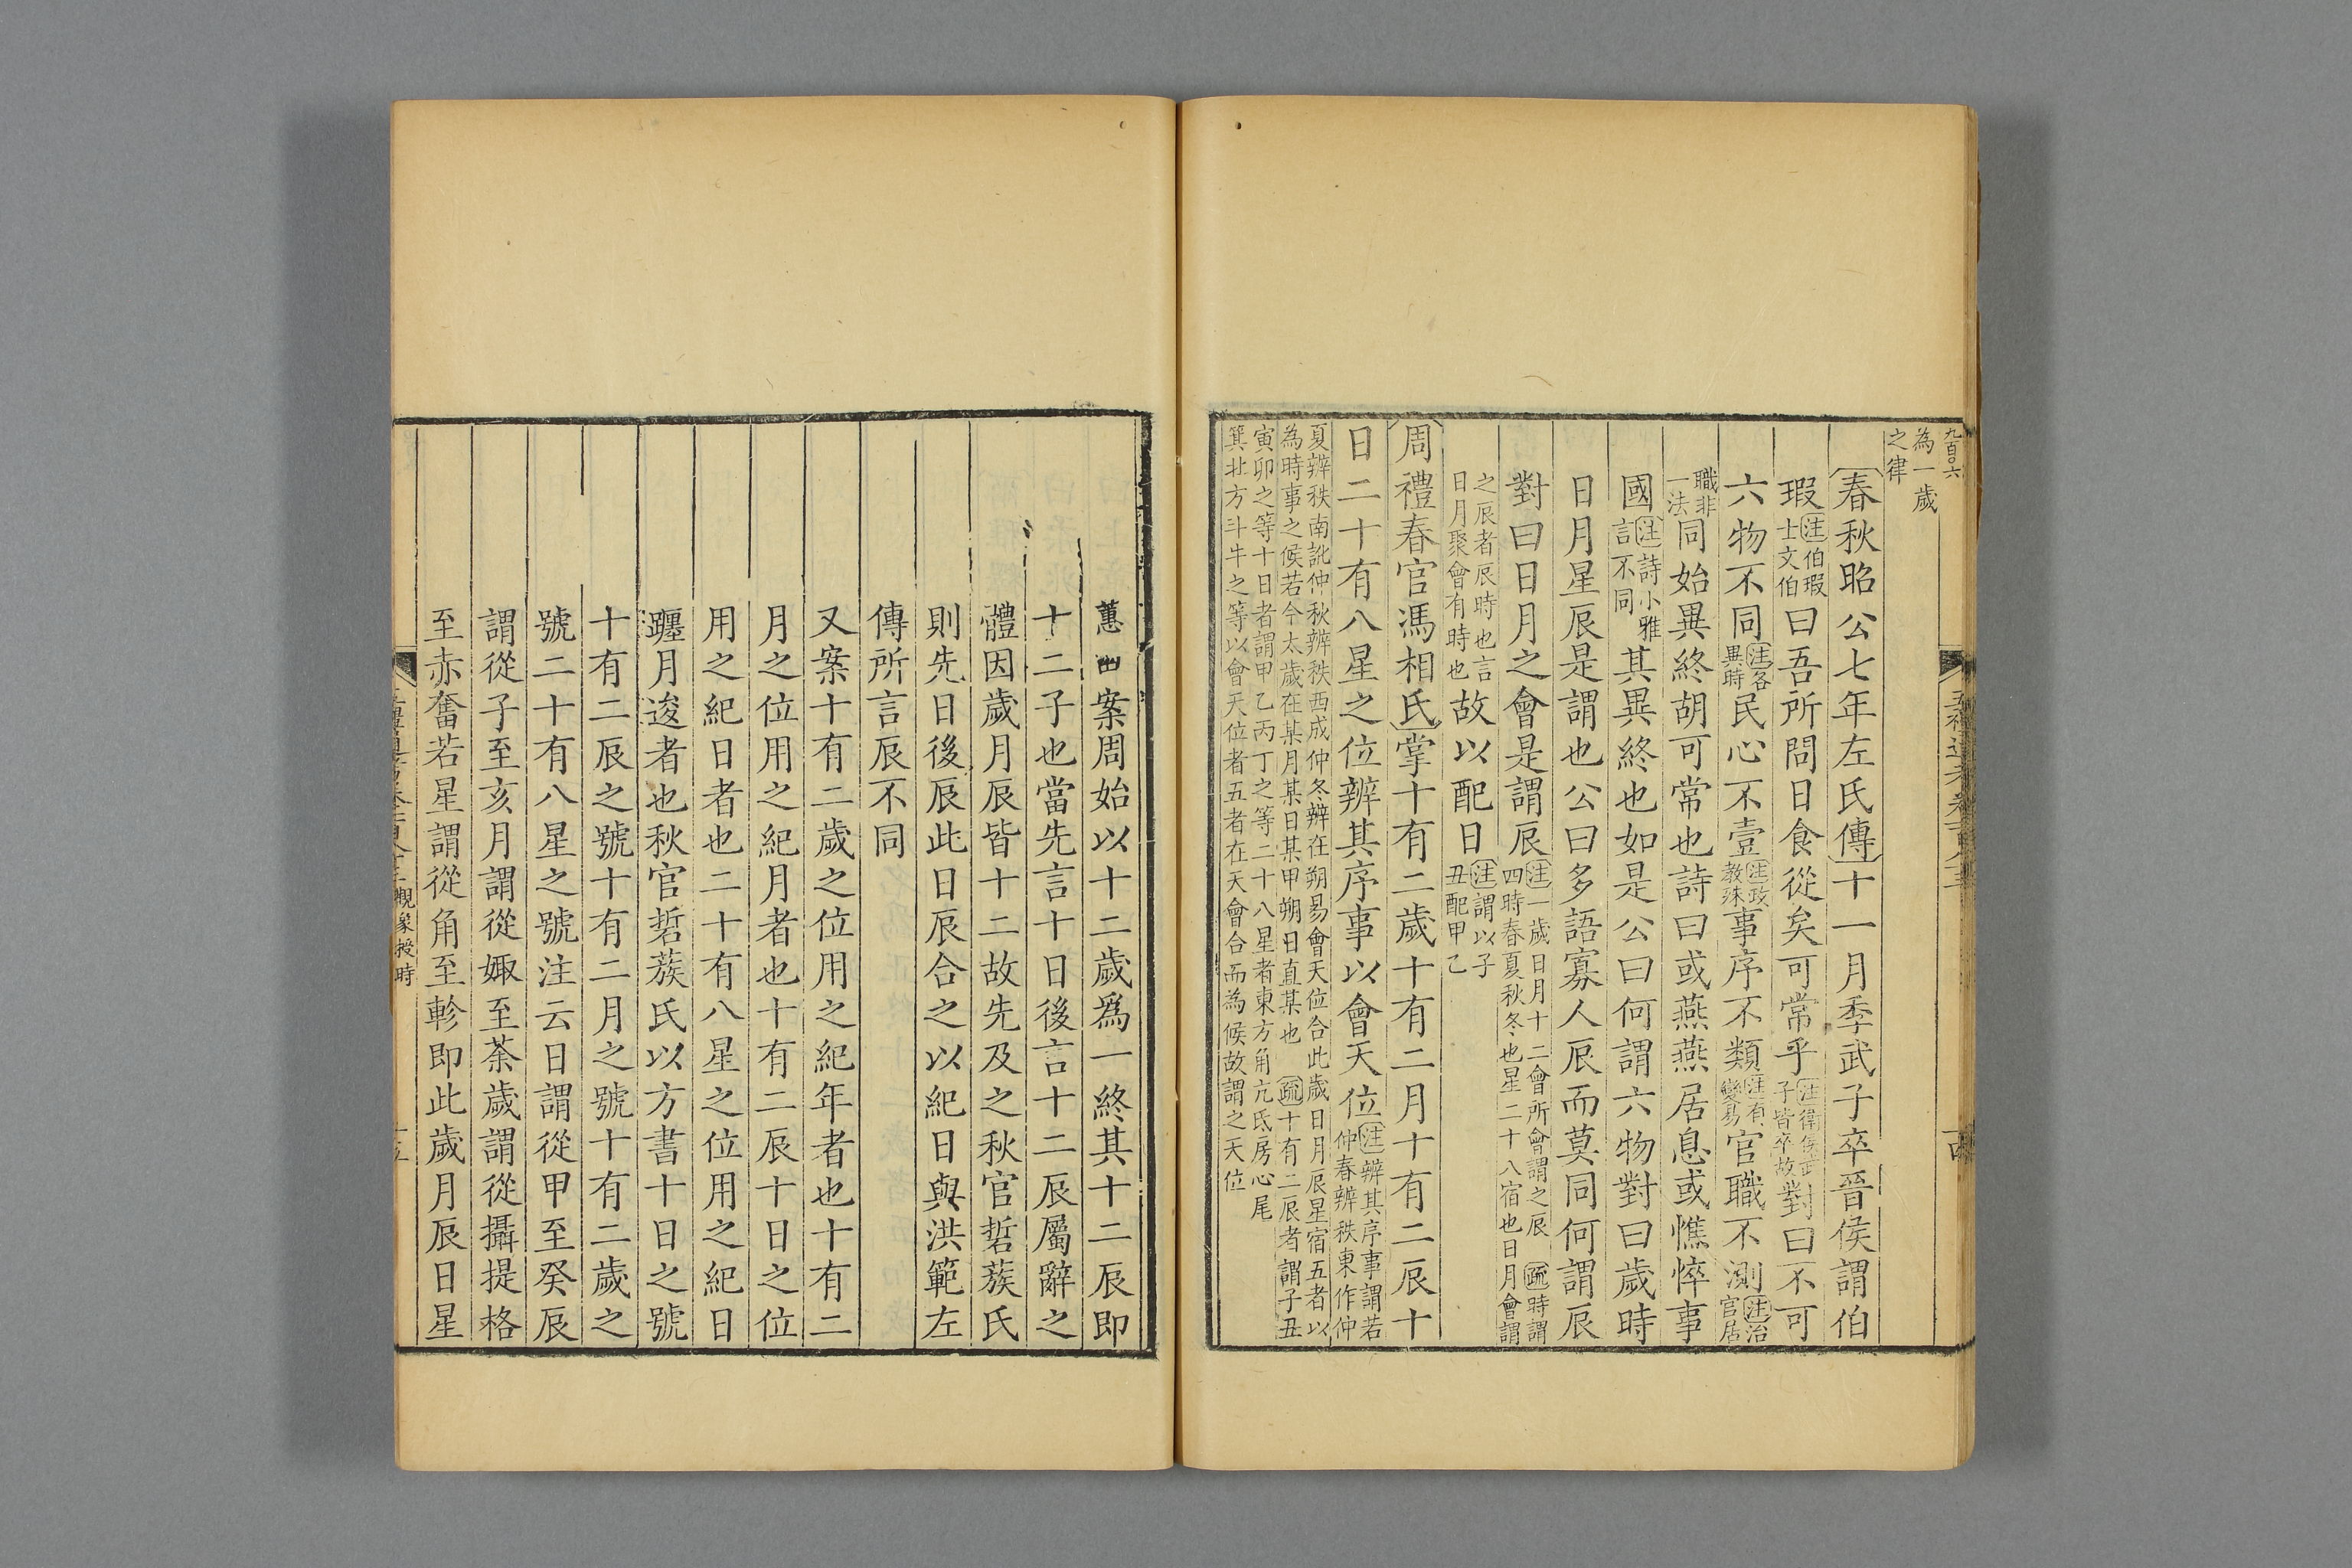 九百〇六
為一歲
之律
春秋昭公七年左氏傳十一月季武子卒晉侯謂伯
瑕注伯瑕士文伯曰吾所問日食從矣可常乎注衛侯武子皆卒故對曰不可
六物不同注各異時民心不壹注政教殊事序不類注有變易官職不測注治官居
職非一法同始異終胡可常也詩曰或燕燕居息或憔悴事
國注詩小雅言不同其異終也如是公曰何謂六物對曰歲時
日月星辰是謂也公曰多語寡人辰而莫同何謂辰
對曰日月之會是謂辰注一歲日月十二會所會謂之辰疏時謂四時春夏秋冬也星二十八宿也日月會謂
之辰者辰時也言日月聚會有時也故以配日注謂以子丑配甲乙
周禮春官馮相氏掌十有二歲十有二月十有二辰十
日二十有八星之位辨其序事以會天位注辨其序事謂若仲春辨秩東作仲
夏辨秩南訛仲秋辨秩西成仲冬辨在朔易會天位合此歲日月辰星宿五者以
為時事之候若今太歲在某月某日某甲朔日直某也疏十有二辰者謂子丑
寅卯之等十日者謂甲乙丙丁之等二十八星者東方角亢氐房心尾
箕北方斗牛之等以會天位者五者在天會合而為候故謂之天位
蕙田案周始以十二歲爲一終其十二辰即
十二子也當先言十日後言十二辰屬辭之
體因歲月辰皆十二故先及之秋官硩蔟氏
則先日後辰此日辰合之以紀日與洪範左
傳所言辰不同
又案十有二歲之位用之紀年者也十有二
月之位用之紀月者也十有二辰十日之位
用之紀日者也二十有八星之位用之紀日
躔月逡者也秋官硩蔟氏以方書十日之號
十有二辰之號十有二月之號十有二歲之
號二十有八星之號注云日謂從甲至癸辰
謂從子至亥月謂從娵至荼歲謂從攝提格
至赤奮若星謂從角至軫即此歲月辰日星
觀象授時